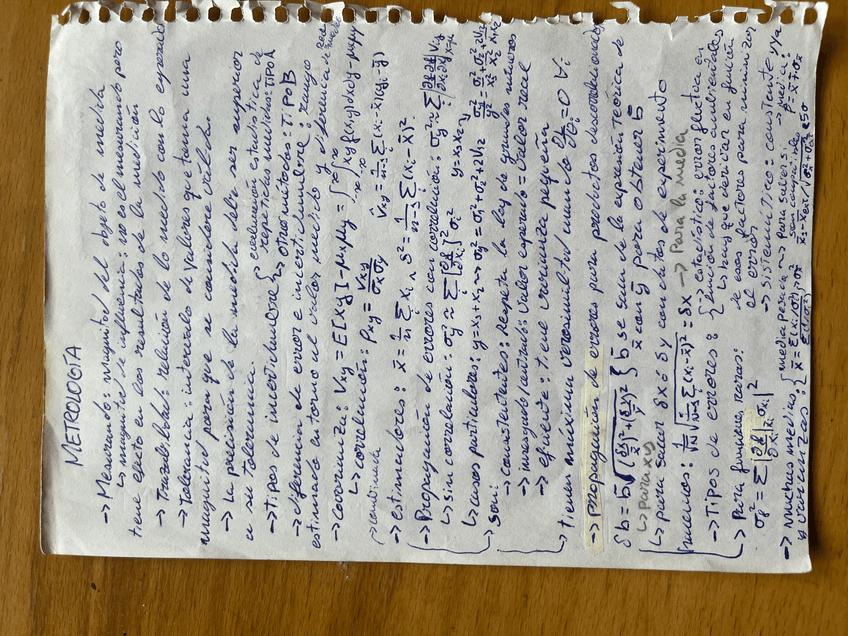 METROLOGÍA
→ Mesurando: magnitud del objeto de medida
↳ magnitud de influencia: no es el mesurando pero
tiene efecto en los resultados de la medición
→ Trazabilidad: relación de lo medido con lo esperado
→ Tolerancia: intervalo de valores que toma una
magnitud para que se considere válido.
→ La precisión de la medida debe ser superior
a su tolerancia.
→ tipos de incertidumbre { evaluación estadística de
repetidas medidas: TIPO A
→ otros métodos: TIPO B
→ diferencia de error e incertidumbre: rango
estimado en torno al valor medido y diferencia de
→ covarianza: Vxy = E[xy] - μxμy = ∫∫ xy f(x,y) dx dy - μxμy
↳ correlación: ρxy = Vxy / σxσy
V̂xy = 1/(n-1) Σ(xi - x̄)(yi - ȳ)
→ estimadores: x̄ = 1/n Σ xi ∧ S² = 1/(n-1) Σ(xi - x̄)².
→ Propagación de errores con correlación: σy² ≈
↳ sin correlación: σy² ≈ Σ [∂f/∂xi]² σi²
↳ casos particulares: y = x1 + x2 → σy² = σ1² + σ2² + 2V12
y = x1 x2 →
→ son:
→ consistentes: Respeta la ley de grandes números
→ insesgado/centrado: valor esperado = valor real
→ eficiente: tiene varianza pequeña
→ tienen máxima verosimilitud cuando = 0 ∀i
→ propagación de errores para productos descorrelacionados
δb = b̄ √((δx/x̄)² + (δy/ȳ)²) { b̄ se saca de la expresión teórica de
x̄ con ȳ para obtener b̄
↳ para xy
↳ para sacar δx o δy con datos de experimento
hacemos: 1/√N √(1/(N-1) Σ(xi - x̄)²) = δx → Para la media
→ Tipos de errores: { → estadístico: error fluctúa en
función de factores ambientales
↳ hay que derivar en función
de esos factores para minimizar
el error
→ sistemático: constante
→ Para funciones raras:
σf² = Σ |∂f/∂xi σi|²
→ Muchas medias
y varianzas: { media pesada
x̄ = Σ(xi/σi²) / Σ(1/σi²)
→ para saber si
son compatibles